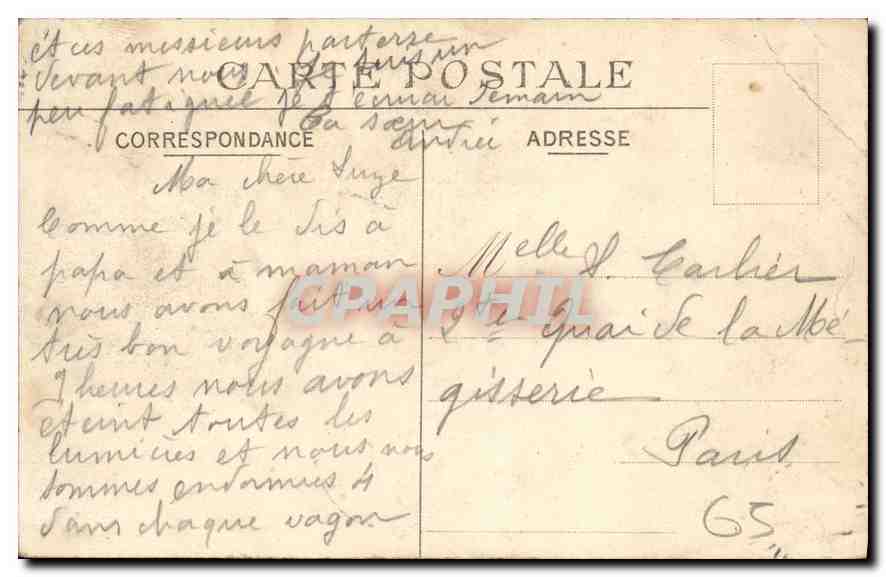 et ces messieurs par terre
devant nous Je suis un
peu fatiguée je t'écrirai demain
Ta sœur
Andrée
CARTE POSTALE
CORRESPONDANCE
Ma chère Suze
Comme je le dis à
papa et à maman
nous avons fait un
très bon voyagne à
9 heures nous avons
eteint toutes les
lumières et nous nous
sommes endormies 4
dans chaque vagon
ADRESSE
Melle S. Carlier
2 Quai de la Mé-
gisserie
Paris
65
CPAPHIL